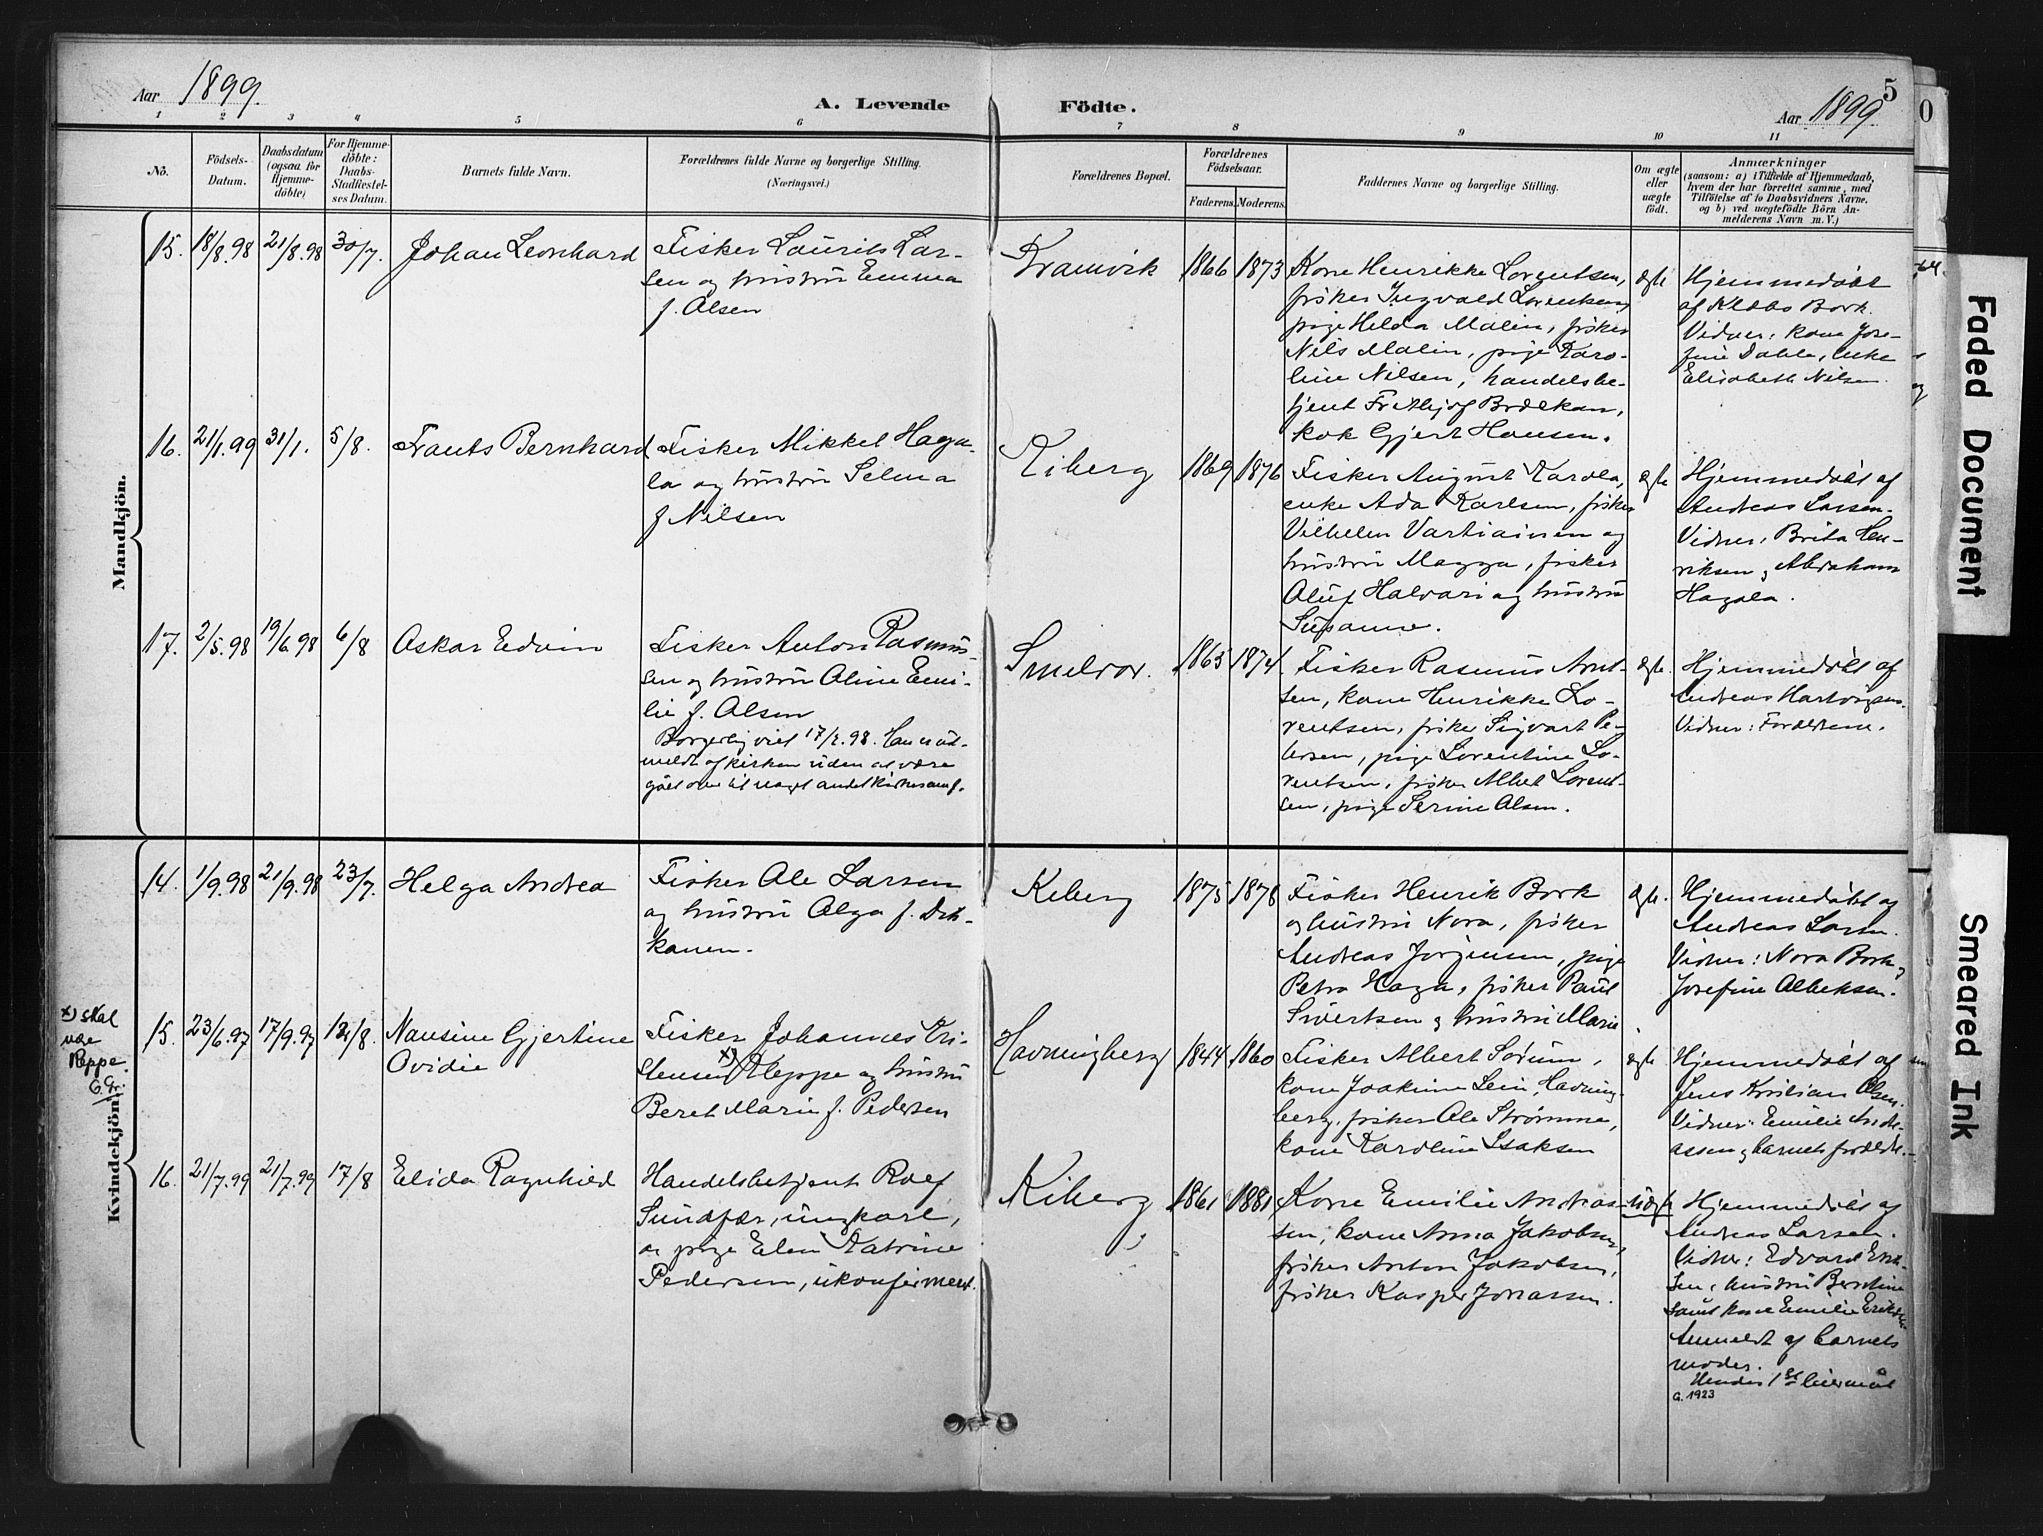 Aar 1899.
A. Levende Födte.
Aar 1899.
5
1 2 3 4 5 6 7 8 9 10 11
No.
Födsels-
Datum.
Daabsdatum
(ogsaa for
Hjemme-
döbte)
For Hjemme-
döbte:
Daabs-
Stadfæstel-
ses Datum.
Barnets fulde Navn.
Forældrenes fulde Navne og borgerlige Stilling.
(Næringsvei.)
Forældrenes Bopæl.
Forældrenes
Födselsaar.
Faderens.
Moderens.
Faddernes Navne og borgerlige Stilling.
Om ægte
eller
uægte
födt.
Anmærkninger
(saasom: a) i Tilfælde af Hjemmedaab,
hvem der har forrettet samme, med
Tilföielse af to Daabsvidners Navne.
og b) ved uægtefödte Börn An-
melderens Navn m. V.)
Mandkjön.
15. 18/8.98 21/8.98 30/7. Johan Leonhard
Fisker Laurits Lar-
sen og hustru Emma
f. Olsen
Kramvik 1866 1873
Kone Henrikke Lorentsen,
fisker Ingvald Lorentsen,
pige Helda Malin, fisker
Nils Malin, pige Karo-
line Nilsen, handelsbe-
tjent Fritthjof Brækan,
kok Gjert Hansen.
ægte
Hjemmedøbt
af Klebs Bork.
Vidner: kone Jose-
fine Dahle, enke
Elisabeth Nilsen.
16. 21/1.99 31/1. 5/8. Frants Bernhard
Fisker Mikkel Haga-
la og hustru Selma
f Nilsen
Kiberg 1869 1876
Fisker August Karola,
enke Ada Karlsen, fisker
Vilhelm Vartiainen og
hustru Magga, fisker
Oluf Halvari og hustru
Susanne.
ægte
Hjemmedøbt af
Andreas Larsen.
Vidner: Brita Hen-
riksen, Abraham
Hagala.
17. 2/5.98 19/6.98 6/8 Oskar Edvin
Fisker Anton Rasmus-
sen og hustru Oline Emi-
lie f. Olsen
Borgerlig viet 17/2.98. Han er ud-
meldt af kirken uden at være
gået over til noget andet kirkesamf.
Smelror. 1865 1874.
Fisker Rasmus Arnt-
sen, kone Henrikke Lo-
rentsen, fisker Sigvart Pe-
dersen, pige Lorentine Lo-
rentsen, fisker Albert Lorent-
sen, pige Serine Olsen.
ægte.
Hjemmedøbt af
Andreas Hartvigsen.
Vidner: Forældrene.
Kvindekjön.
14. 1/9.98 21/9.98 23/7. Helga Andrea
Fisker Ole Larsen
og hustru Olga f. Dit-
kanen.
Kiberg 1875 1878
Fisker Henrik Bork
og hustru Nora, fisker
Andreas Jørgensen, pige
Petra Haga, fisker Paul
Sivertsen og hustru Marie
ægte.
Hjemmedøbt af
Andreas Larsen.
Vidner: Nora Bork,
Josefine Albeksen.
x) skal
være
Reppe.
15. 23/6.97 17/9.97 12/8. Nansine Gjertine
Ovidie
Fisker Johannes Kri-
stensen x) Kleppe og hustru
Beret Marie f. Pedersen
Havningberg 1844 1860
Fisker Albert Sørum,
kone Joakime Lein, Havning-
berg, fisker Ole Strømme,
kone Karoline Isaksen
ægte
Hjemmedøbt af
Jens Kristian Olsen.
Vidner: Emilie Andre-
assen, barnets forældre.
16. 21/7.99 21/7.99 17/8 Elida Ragnhild
Handelsbetjent Rolf
Sundfær, ungkarl,
og pige Elen Katrine
Pedersen, ukonfirmert.
Kiberg 1861 1881
Kone Emilie Andreas-
sen, kone Anna Jakobsen,
fisker Anton Jakobsen,
fisker Kasper Jonassen.
uægte
Hjemmedøbt af
Andreas Larsen.
Vidner: Edvard Erik-
sen, hustru Berntine
samt kone Emilie Eriksen
Anmeldt af barnets
moder.
Hendes 1ste leiermål
G. 1923
Faded Document
Smeared Ink